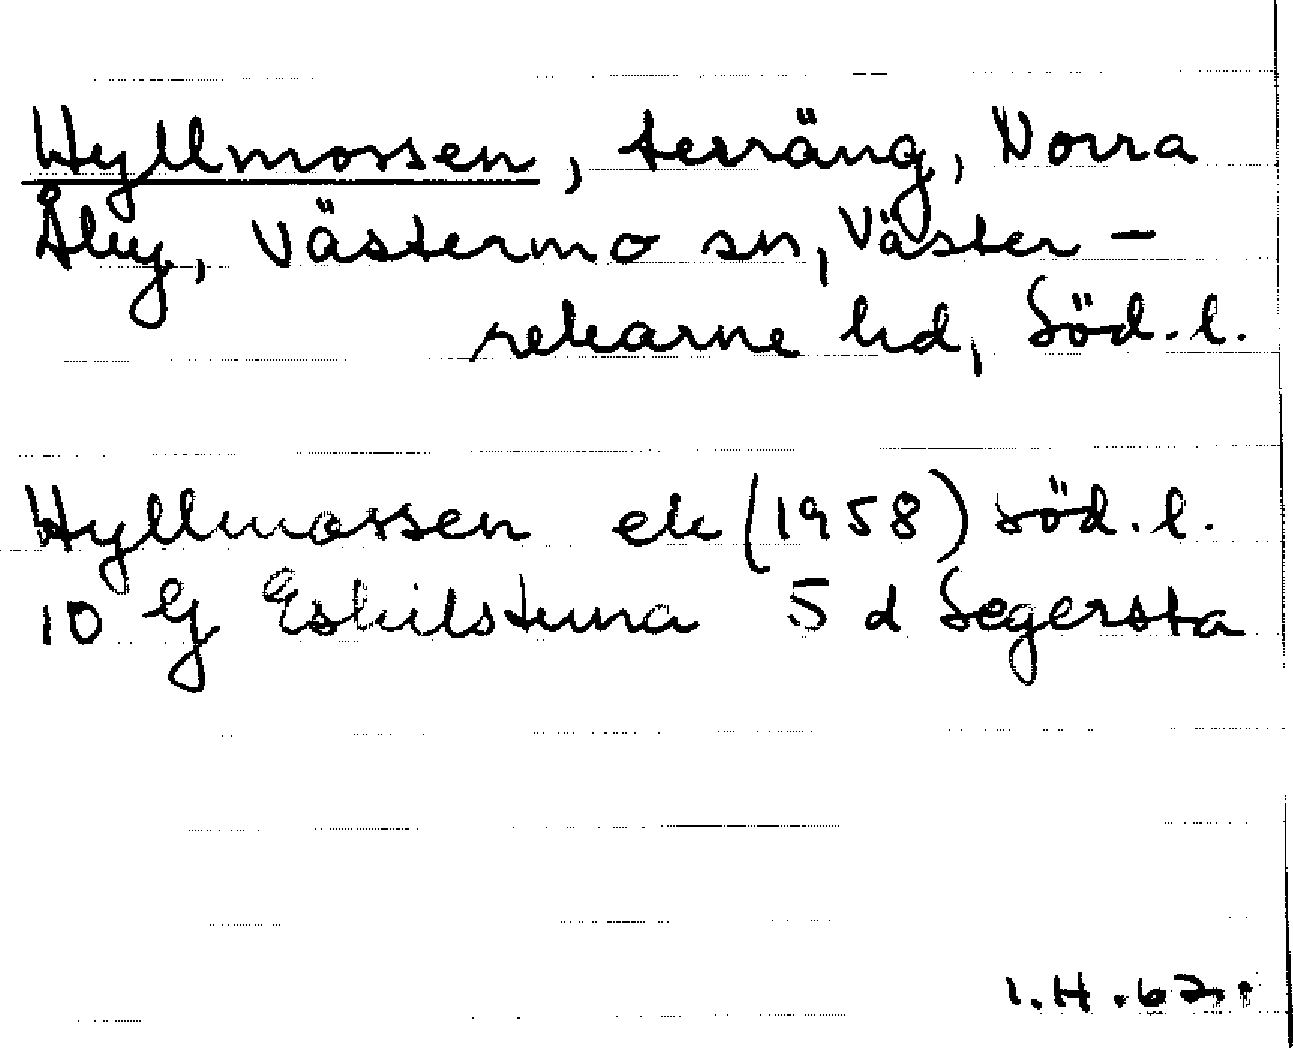 Hyllmossen, terräng, Norra
Åby, Västermo sn, Väster-
rekarne hd, Söd.l.
Hyllmossen ek (1958) Söd.l.
10 G Eskilstuna 5 d Segersta
I.H.62.